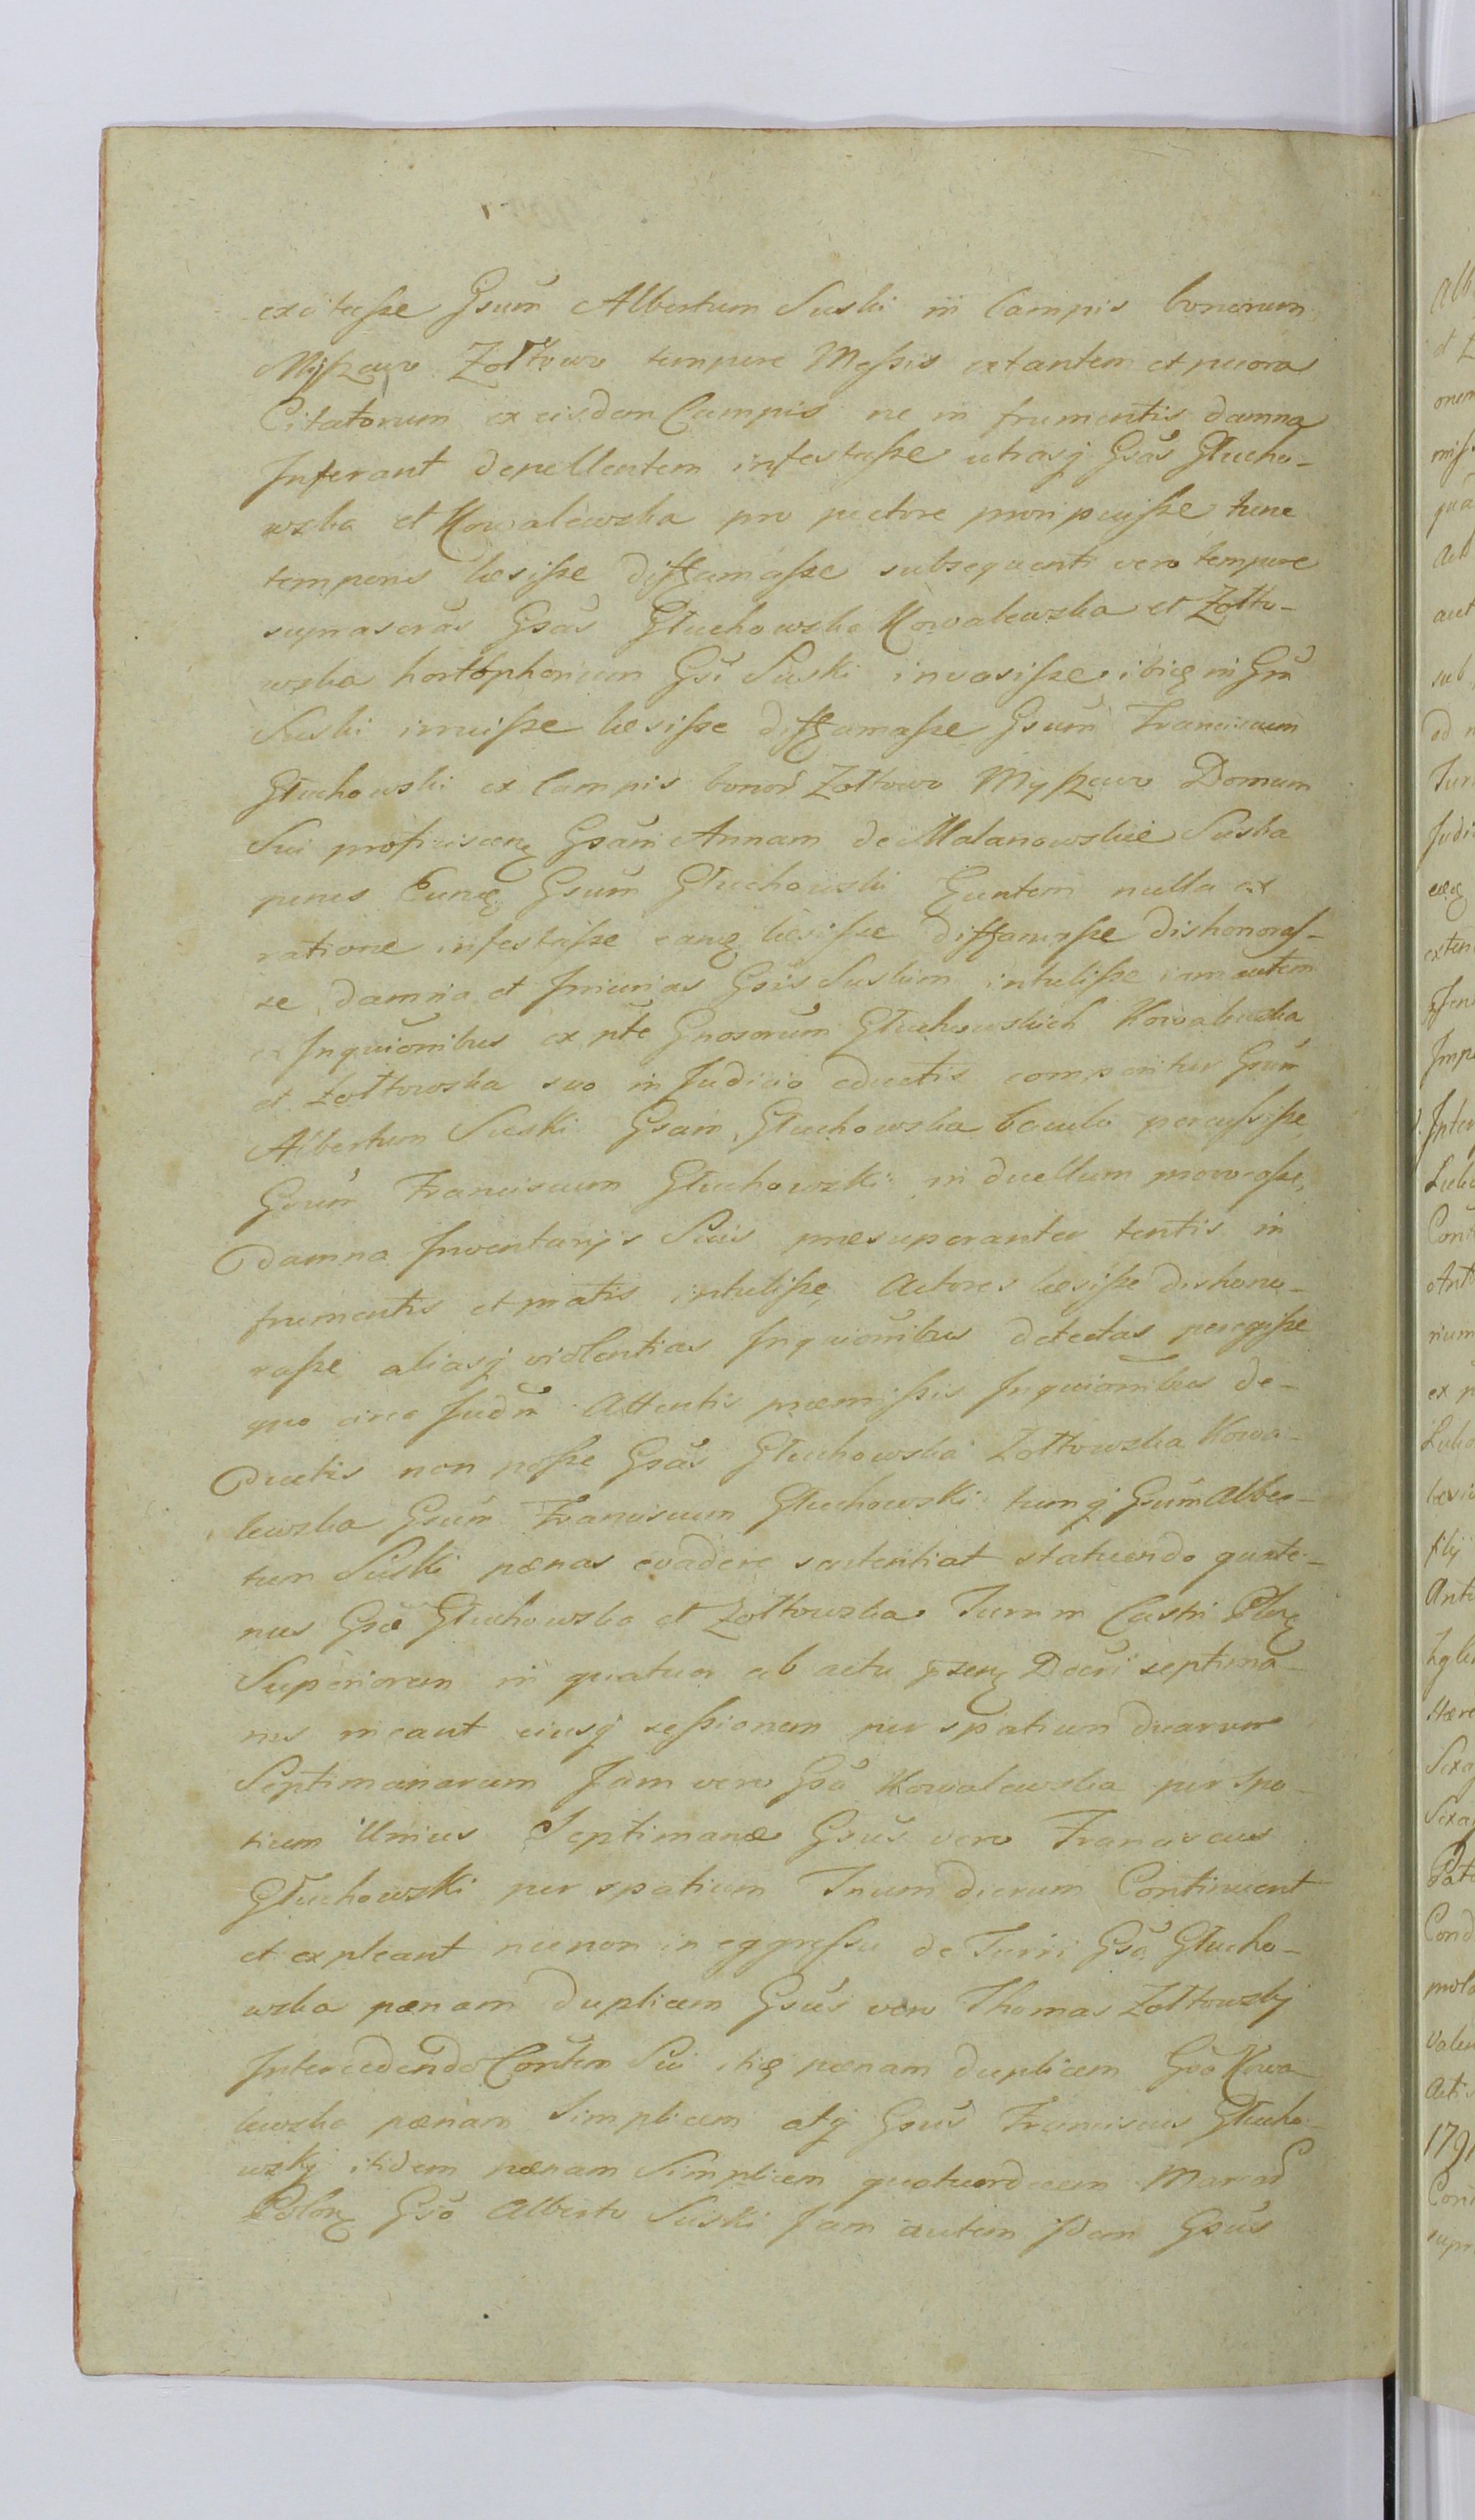 excitasse Gsum Albertum Suski in Campis bonorum
Myszewo Zołtowo tempore Messis extantem et pecora
Citatorum ex eisdem Campis ne in frumentis damna
Inferant depellentem infestasse utrasq Gsas Głucho-
wska et Kowalewska pro pectore proripuisse tunc
temporis læsisse diffamasse subsequenti vero tempore
supnascras Gsas Głuchowska Kowalewska et Zołto-
wska hortophorium Gsi Suski invasisse, ibiq in Gm
Suski irruisse læsisse diffamasse Gsum Franciscum
Głuchowski ex Campis bonor Zołtowo Myszewo Domum
Sui proficiscen Gsam Annam de Malanowskie Suska
penes Eund Gsum Głuchowski Euntem nulla ex
ratione infestasse eamq læsisse diffamasse dishonoras-
se, damna et Iniurias Gsis Suskim intulisse iam autem
ex Inquionibus ex pte Gnosorum Głuchowskich Kowalewska
et Zołtowska suo in Judicio eductis comperitur Gsum
Albertum Suski Gsam Głuchowska baculo percussisse
Gsum Franciscum Głuchowski in duellum provocasse,
damna Inventarijs Suis præsuperanter tentis in
frumentis et pratis intulisse, Actores læsisse dishono-
rasse aliasq violentias Inquionibus detectas peregisse
quo circa Judm Attentis præmissis Inquionibus de-
ductis non posse Gsas Głuchowska Zołtowska Kowa-
lewska Gsum Franciscum Głuchowski tumq Gsum Alber-
tum Suski pænas evadere sententiat statuendo quate-
nus Gsæ Głuchowska et Zołtowska Turrim Castri Plocen
Superiorem in quatuor ab actu præsen Decri septima-
nis ineant eiusq sessionem per spatium duarum
Septimanarum Jam vero Gsa Kowalewska per spa-
tium Unius Septimanæ Gsus vero Franciscus
Głuchowski per spatium Trium dierum Continuent
et expleant necnon in eggressu de Turri Gsa Głucho-
wska pænam duplicem Gsus vero Thomas Zołtowskj
Intercedendo Contem Sui itid pænam duplicem Gsa Kowa-
lewska pænam Simplicem atq Gsus Franciscus Głucho-
wskj itidem pænam Simplicem quatuordecem Marcar
Polon Gso Alberto Suski Jam autem idem Gsus